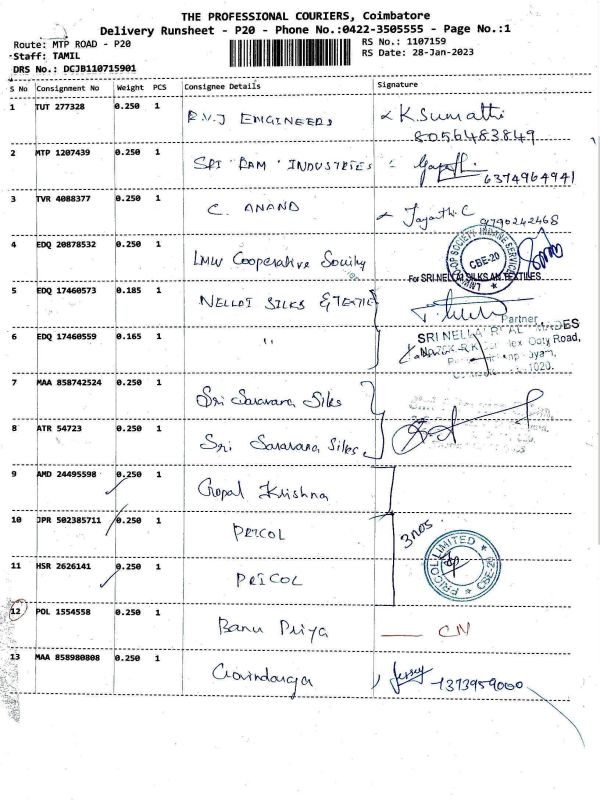 THE PROFESSIONAL COURIERS, Coimbatore
Delivery Runsheet - P20 - Phone No.:0422-3505555 - Page No.:1
Route: MTP ROAD - P20
RS No.: 1107159
Staff: TAMIL
RS Date: 28-Jan-2023
DRS No.: DCJB110715901
S No Consignment No Weight PCS Consignee Details Signature
1 TUT 277328 0.250 1 R.V.J ENGINEERS K.Sumathi
8056483849
2 MTP 1207439 0.250 1 SRI RAM INDUSTRIES
6374964941
3 TVR 4088377 0.250 1 C. ANAND Jayanthi.C
9790242468
4 EDQ 20878532 0.250 1 LMW Cooperative Society
LMW CO-OP SOCIETY INDANE SERVICES
CBE-20
For SRI NELLAI SILKS AN TEXTILES
5 EDQ 17460573 0.185 1 NELLAI SILKS & TEXTILE
Partner
6 EDQ 17460559 0.165 1 "
SRI NELLAI
Ooty Road,
7 MAA 858742524 0.250 1 Sri Saravana Silks
8 ATR 54723 0.250 1 Sri Saravana Silks
9 AMD 24495598 0.250 1 Gopal Krishna
10 JPR 502385711 0.250 1 PRICOL 3nos
11 HSR 2626141 0.250 1 PRICOL
PRICOL LIMITED
CBE-20
12 POL 1554558 0.250 1 Banu Priya CN
13 MAA 858980808 0.250 1
7373959000